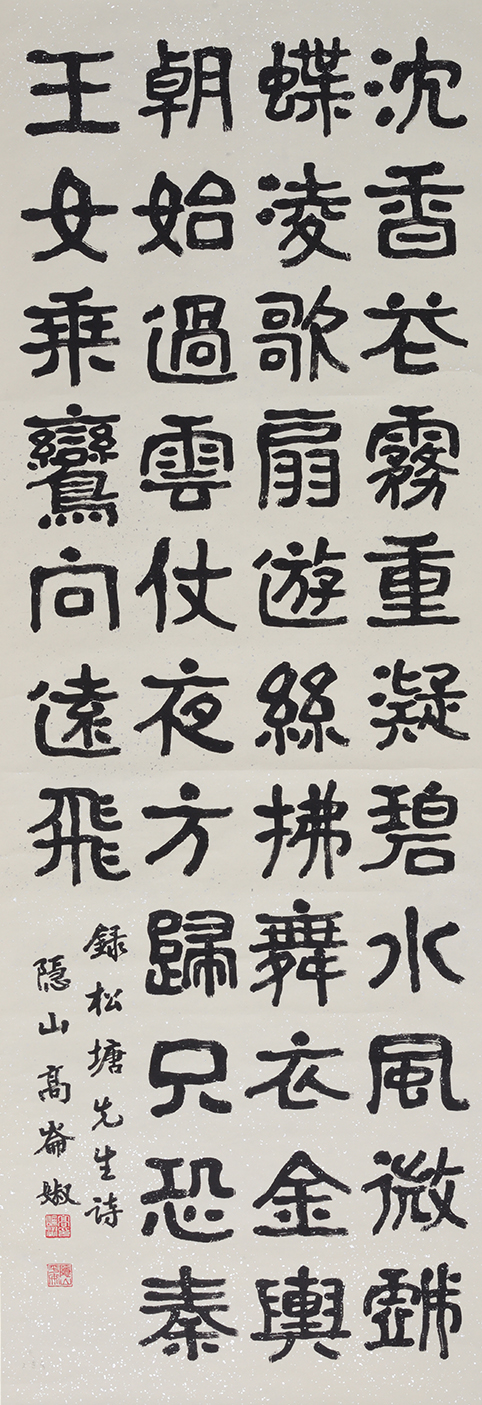 沈香花霧重凝碧水風微戲
蝶凌歌扇遊絲拂舞衣金輿
朝始過雲仗夜方歸只恐秦
王女乘鸞向遠飛
録松塘先生诗
隱山高崙婌